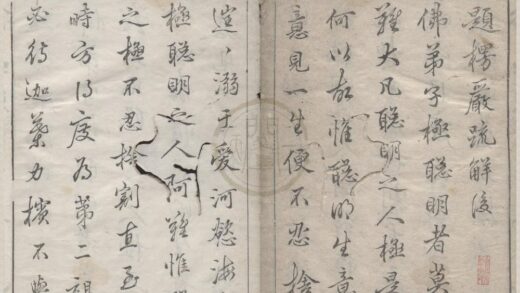 題楞嚴疏解後
佛弟子極聰明者莫
難大凡聰明之人極是
何以故惟聰明生意
意見一生便不忍捨
溺于愛河慾海
極聰明之人阿難惟
之極不忍捨割直至
時方得度為第二祖
必待迦葉力擯不與